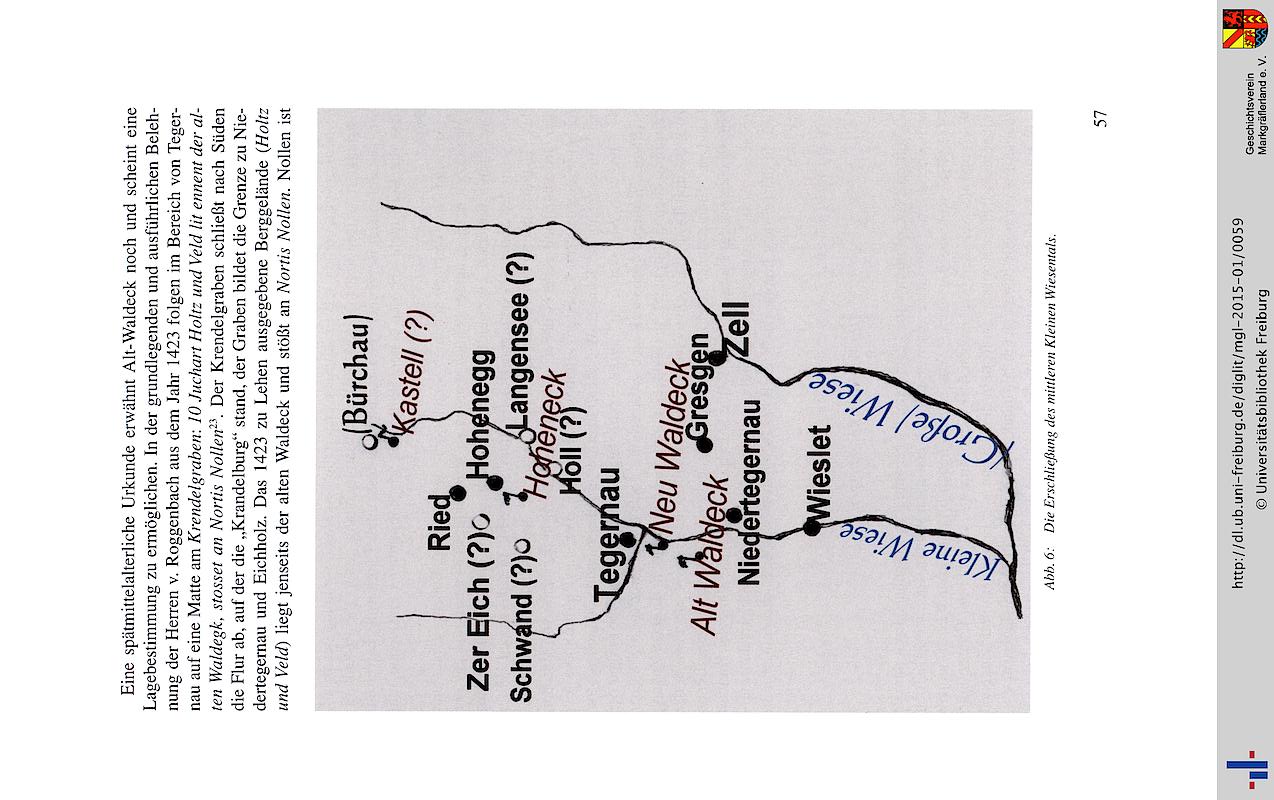 Eine spätmittelalterliche Urkunde erwähnt Alt-Waldeck noch und scheint eine
Lagebestimmung zu ermöglichen. In der grundlegenden und ausführlichen Beleh-
nung der Herren v. Roggenbach aus dem Jahr 1423 folgen im Bereich von Teger-
nau auf eine Matte am Krendelgraben: 10 Juchart Holtz und Veld lit ennent der al-
ten Waldegk, stosset an Nortis Nollen²³. Der Krendelgraben schließt nach Süden
die Flur ab, auf der die „Krandelburg“ stand, der Graben bildet die Grenze zu Nie-
dertegernau und Eichholz. Das 1423 zu Lehen ausgegebene Berggelände (Holtz
und Veld) liegt jenseits der alten Waldeck und stößt an Nortis Nollen. Nollen ist
(Bürchau)
Kastell (?)
Ried
Hohenegg
Zer Eich (?)
Langensee (?)
Schwand (?)
Hoheneck
Höll (?)
Tegernau
Neu Waldeck
Gresgen
Alt Waldeck
Zell
Niedertegernau
Wieslet
(Große) Wiese
Kleine Wiese
Abb. 6: Die Erschließung des mittleren Kleinen Wiesentals.
57
Geschichtsverein
Markgräflerland e. V.
http://dl.ub.uni-freiburg.de/diglit/mgl-2015-01/0059
© Universitätsbibliothek Freiburg